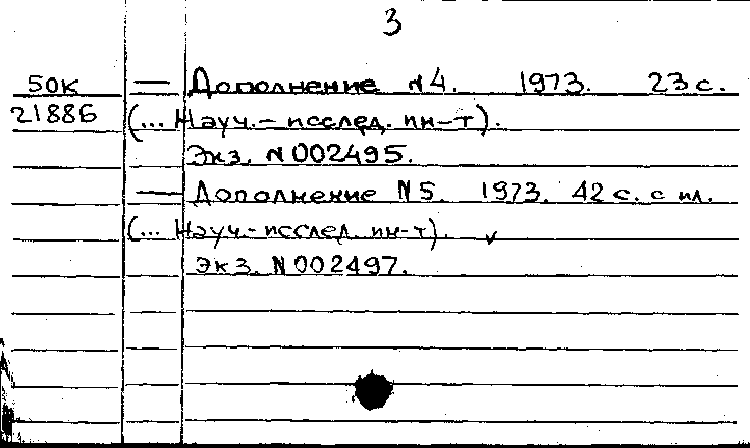 3
50К — Дополнение N4. 1973. 23 с.
2188Б (... Науч.-исслед. ин-т).
Экз. N002495.
— Дополнение N5. 1973. 42 с. с ил.
(... Науч.-исслед. ин-т). v
Экз. N002497.